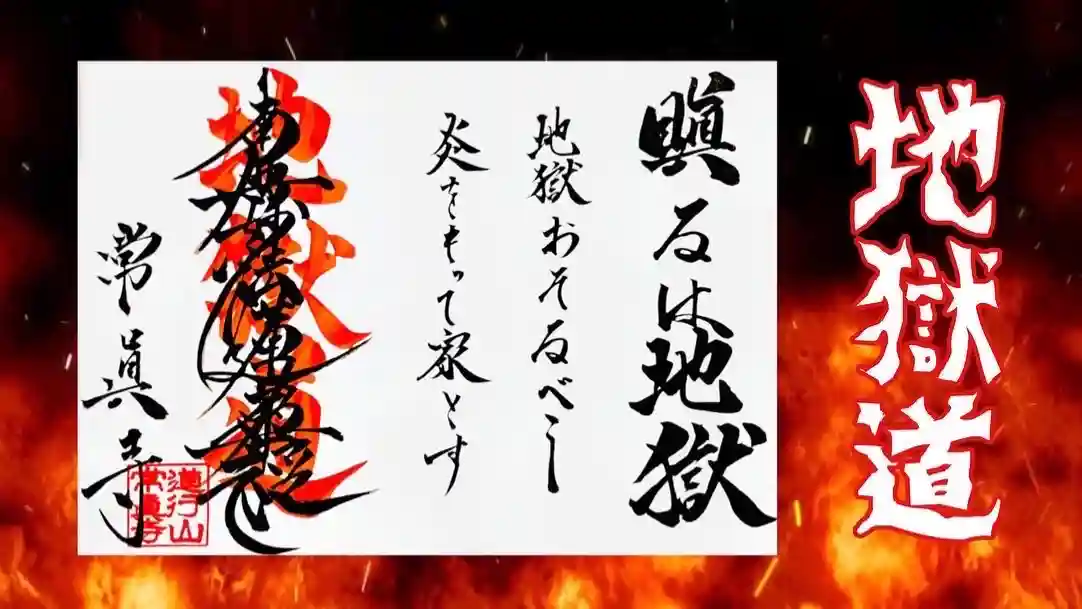 地獄道
瞋るは地獄
地獄おそるべし
炎をもって家とす
地獄道
南無妙法蓮華經
常眞寺
道行山
常眞寺